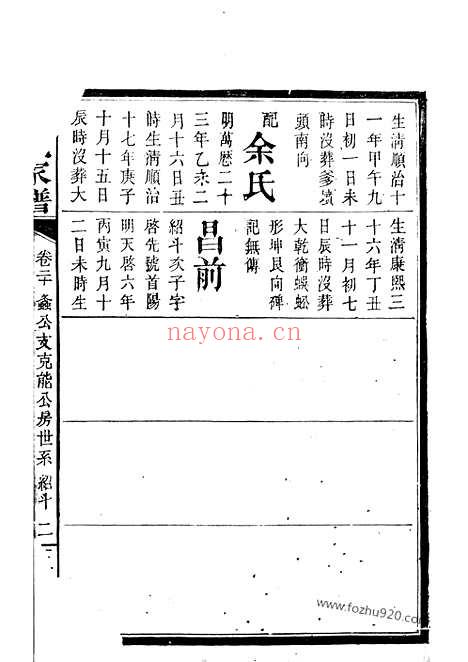 生清順治十
一年甲午九
日初一日未
時沒葬爹墳
頭南向
配余氏
明萬曆二十
三年乙未二
月十六日丑
時生清順治
十七年庚子
十月十五日
辰時沒葬大
生清康熙三
十六年丁丑
十一月初七
日辰時沒葬
大乾衝蜈蚣
形坤艮向碑
記無傳
昌前
紹斗次子字
啓先號首陽
明天啓六年
丙寅九月十
二日未時生
家譜
卷二十 螽公支克能公房世系 紹斗 二
nayona.cn
www.fozhu920.com